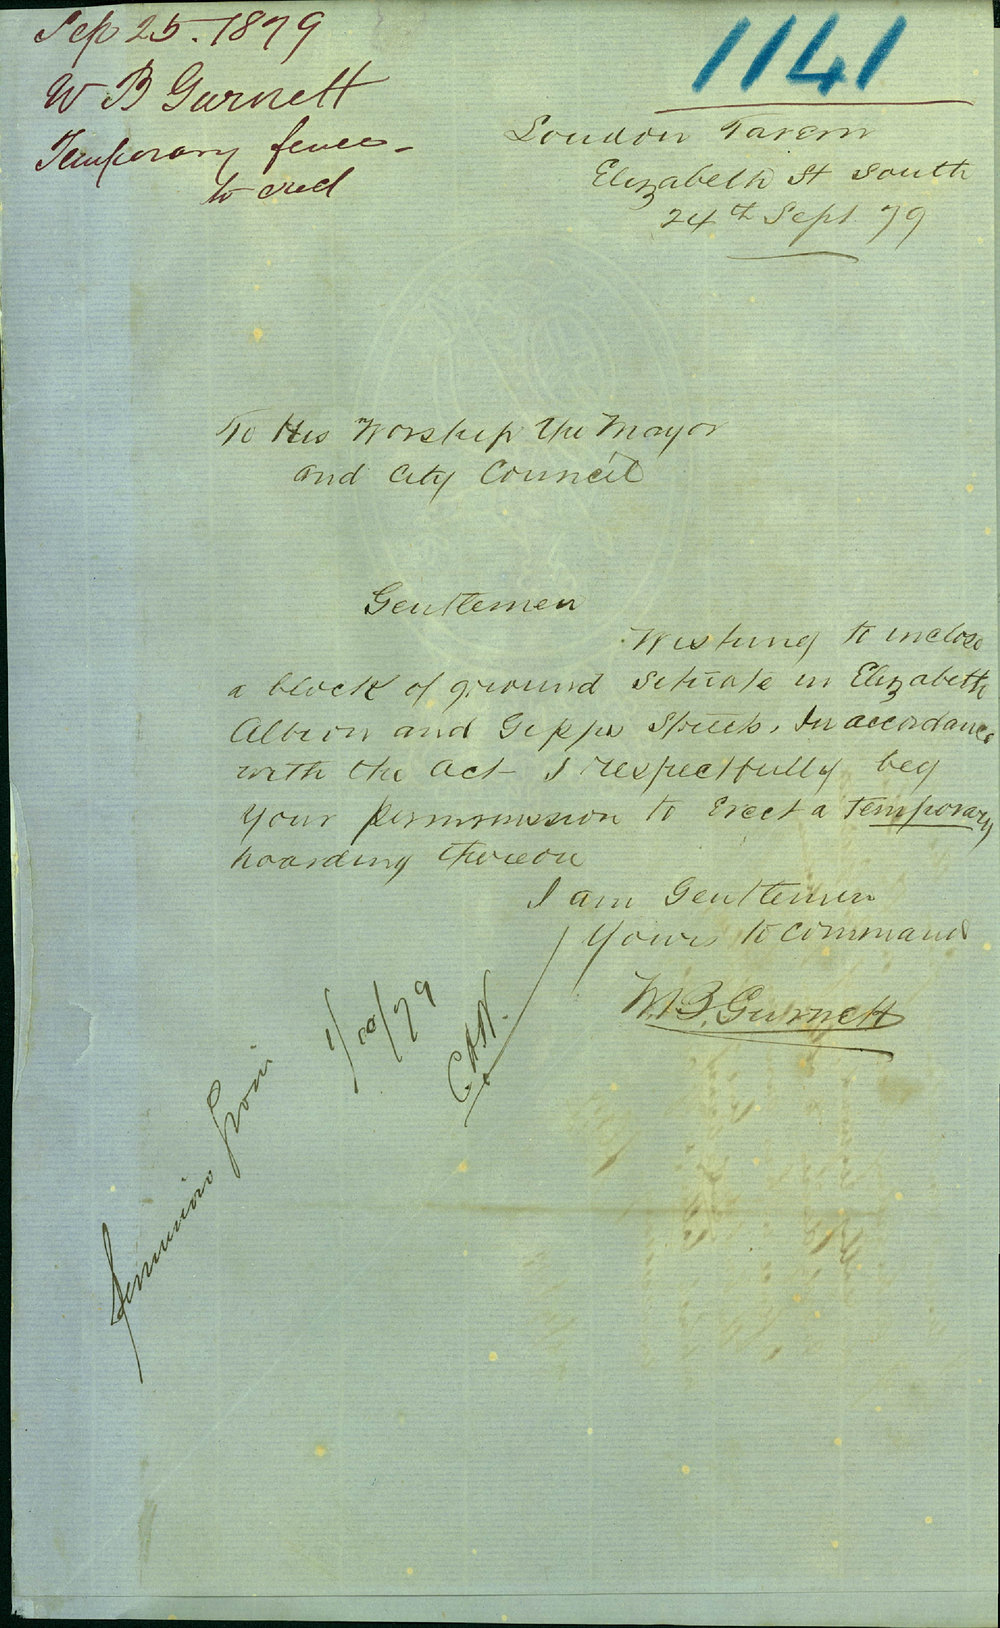 Sep 25. 1879
W B Gurnett
Temporary fence -
to erect
1141
London Tavern
Elizabeth St South
24th Sept 79
To His Worship the Mayor
and City Council
Gentlemen
Wishing to inclose
a block of ground situate in Elizabeth
Albion and Gipps Streets. In accordance
with the Act I respectfully beg
your permission to Erect a temporary
hoarding thereon
I am Gentlemen
Yours to command
W.B. Gurnett
1/10/79